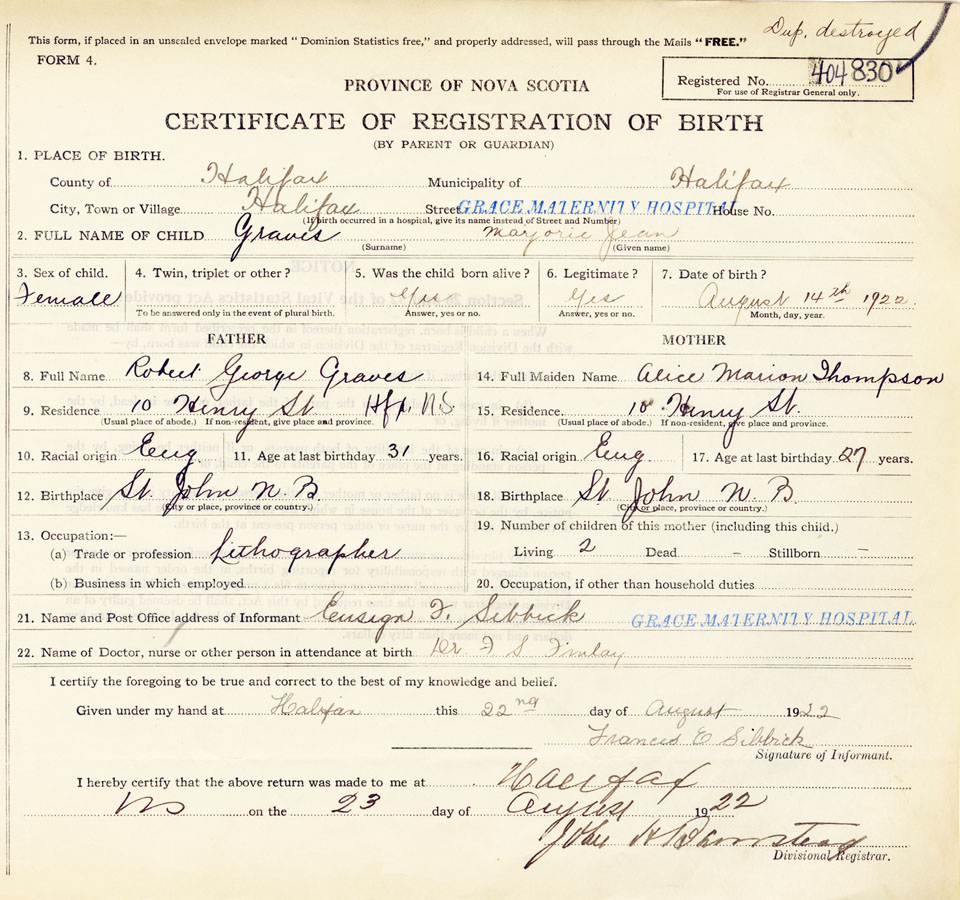 Dup. destroyed
This form, if placed in an unsealed envelope marked " Dominion Statistics free," and properly addressed, will pass through the Mails "FREE."
FORM 4.
Registered No. 404830
For use of Registrar General only.
PROVINCE OF NOVA SCOTIA
CERTIFICATE OF REGISTRATION OF BIRTH
(BY PARENT OR GUARDIAN)
1. PLACE OF BIRTH.
County of Halifax Municipality of Halifax
City, Town or Village Halifax Street GRACE MATERNITY HOSPITAL House No.
(If birth occurred in a hospital, give its name instead of Street and Number)
2. FULL NAME OF CHILD Graves Marjorie Jean
(Surname) (Given name)
3. Sex of child. 4. Twin, triplet or other? 5. Was the child born alive? 6. Legitimate? 7. Date of birth?
Female Yes Yes August 14th 1922
To be answered only in the event of plural birth. Answer, yes or no. Answer, yes or no. Month, day, year.
FATHER MOTHER
8. Full Name Robert George Graves 14. Full Maiden Name Alice Marion Thompson
9. Residence 10 Henry St Hfx. NS 15. Residence. 10 Henry St.
(Usual place of abode.) If non-resident, give place and province. (Usual place of abode.) If non-resident, give place and province.
10. Racial origin Eng 11. Age at last birthday 31 years. 16. Racial origin Eng. 17. Age at last birthday 27 years.
12. Birthplace St. John N.B. 18. Birthplace St John N. B
(City or place, province or country.) (City or place, province or country.)
13. Occupation:— 19. Number of children of this mother (including this child.)
(a) Trade or profession Lithographer Living 2 Dead – Stillborn –
(b) Business in which employed 20. Occupation, if other than household duties
21. Name and Post Office address of Informant Ensign F. Sibbick GRACE MATERNITY HOSPITAL
22. Name of Doctor, nurse or other person in attendance at birth Dr F S Finlay
I certify the foregoing to be true and correct to the best of my knowledge and belief.
Given under my hand at Halifax this 22nd day of August 1922
Frances E Sibbick
Signature of Informant.
I hereby certify that the above return was made to me at Halifax
NS on the 23 day of August 1922
John H
Divisional Registrar.